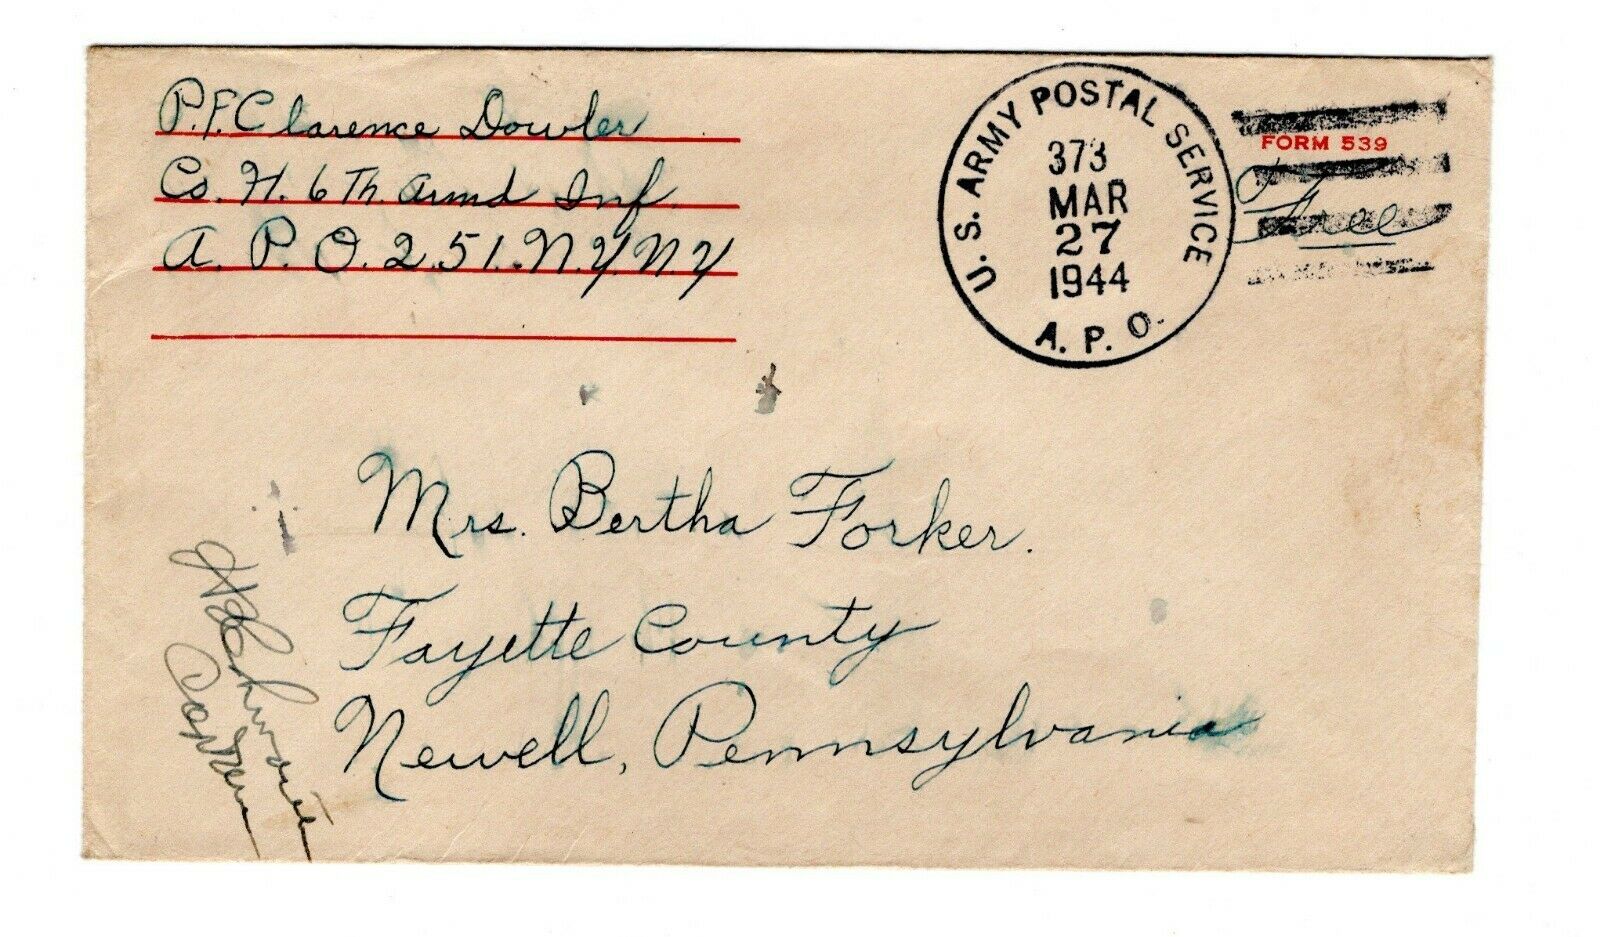 P.F.Clarence Dowler
Co. H. 6Th. Armd Inf.
A. P. O. 251. N.Y. N.Y
U. S. ARMY POSTAL SERVICE
373
MAR
27
1944
A. P. O.
FORM 539
Free
Mrs. Bertha Forker.
Fayette County
Newell, Pennsylvania